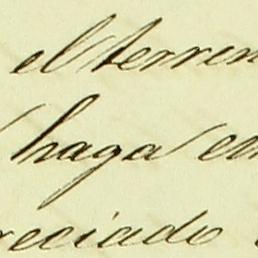 el terren
haga en
reciado